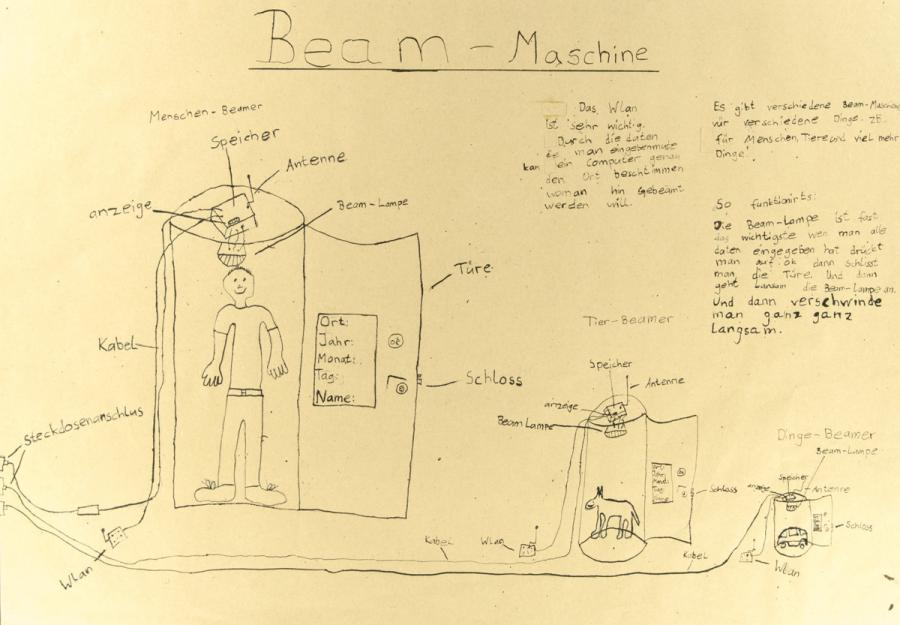 Beam - Maschine
Menschen-Beamer
Speicher
Antenne
anzeige
Beam-Lampe
Türe
Kabel
Ort:
Jahr:
Monat:
Tag:
Name:
ok
Schloss
Steckdosenanschlus
Wlan
Das Wlan
ist sehr wichtig.
Durch die daten
die man eingebenmuss
kan ein Computer genau
den Ort bestimmen
woman hin Gebeamt
werden will.
Es gibt verschiedene Beam-Maschine
vür verschiedene Dinge. ZB.
für Menschen, Tiere und viel mehr
Dinge.
So funktionirts:
Die Beam-Lampe ist fast
das wichtigste wen man alle
daten eingegeben hat drückt
man auf ok dann schlisst
man die Türe. Und dann
geht Lansam die Beam-Lampe an.
Und dann verschwinde
man ganz ganz
Langsam.
Tier-Beamer
Speicher
Antenne
anzeige
Beam Lampe
Schloss
Kabel
Wlan
Dinge-Beamer
Beam-Lampe
Speicher
anzeige
Antenne
Schloss
Kabel
Wlan